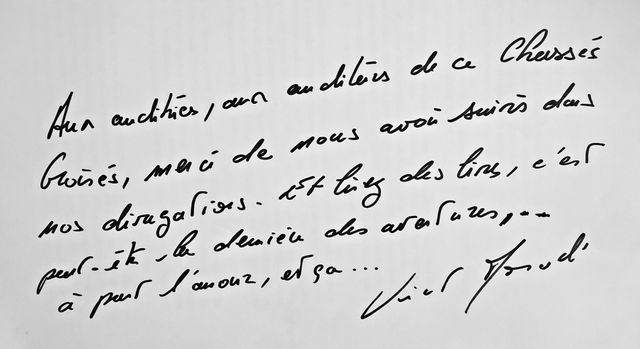 Aux auditrices, aux auditeurs de ce Chassés
Croisés, merci de nous avoir suivis dans
nos divagations. Et lisez des livres, c'est
peut-être la dernière des aventures,...
à part l'amour, et ça...